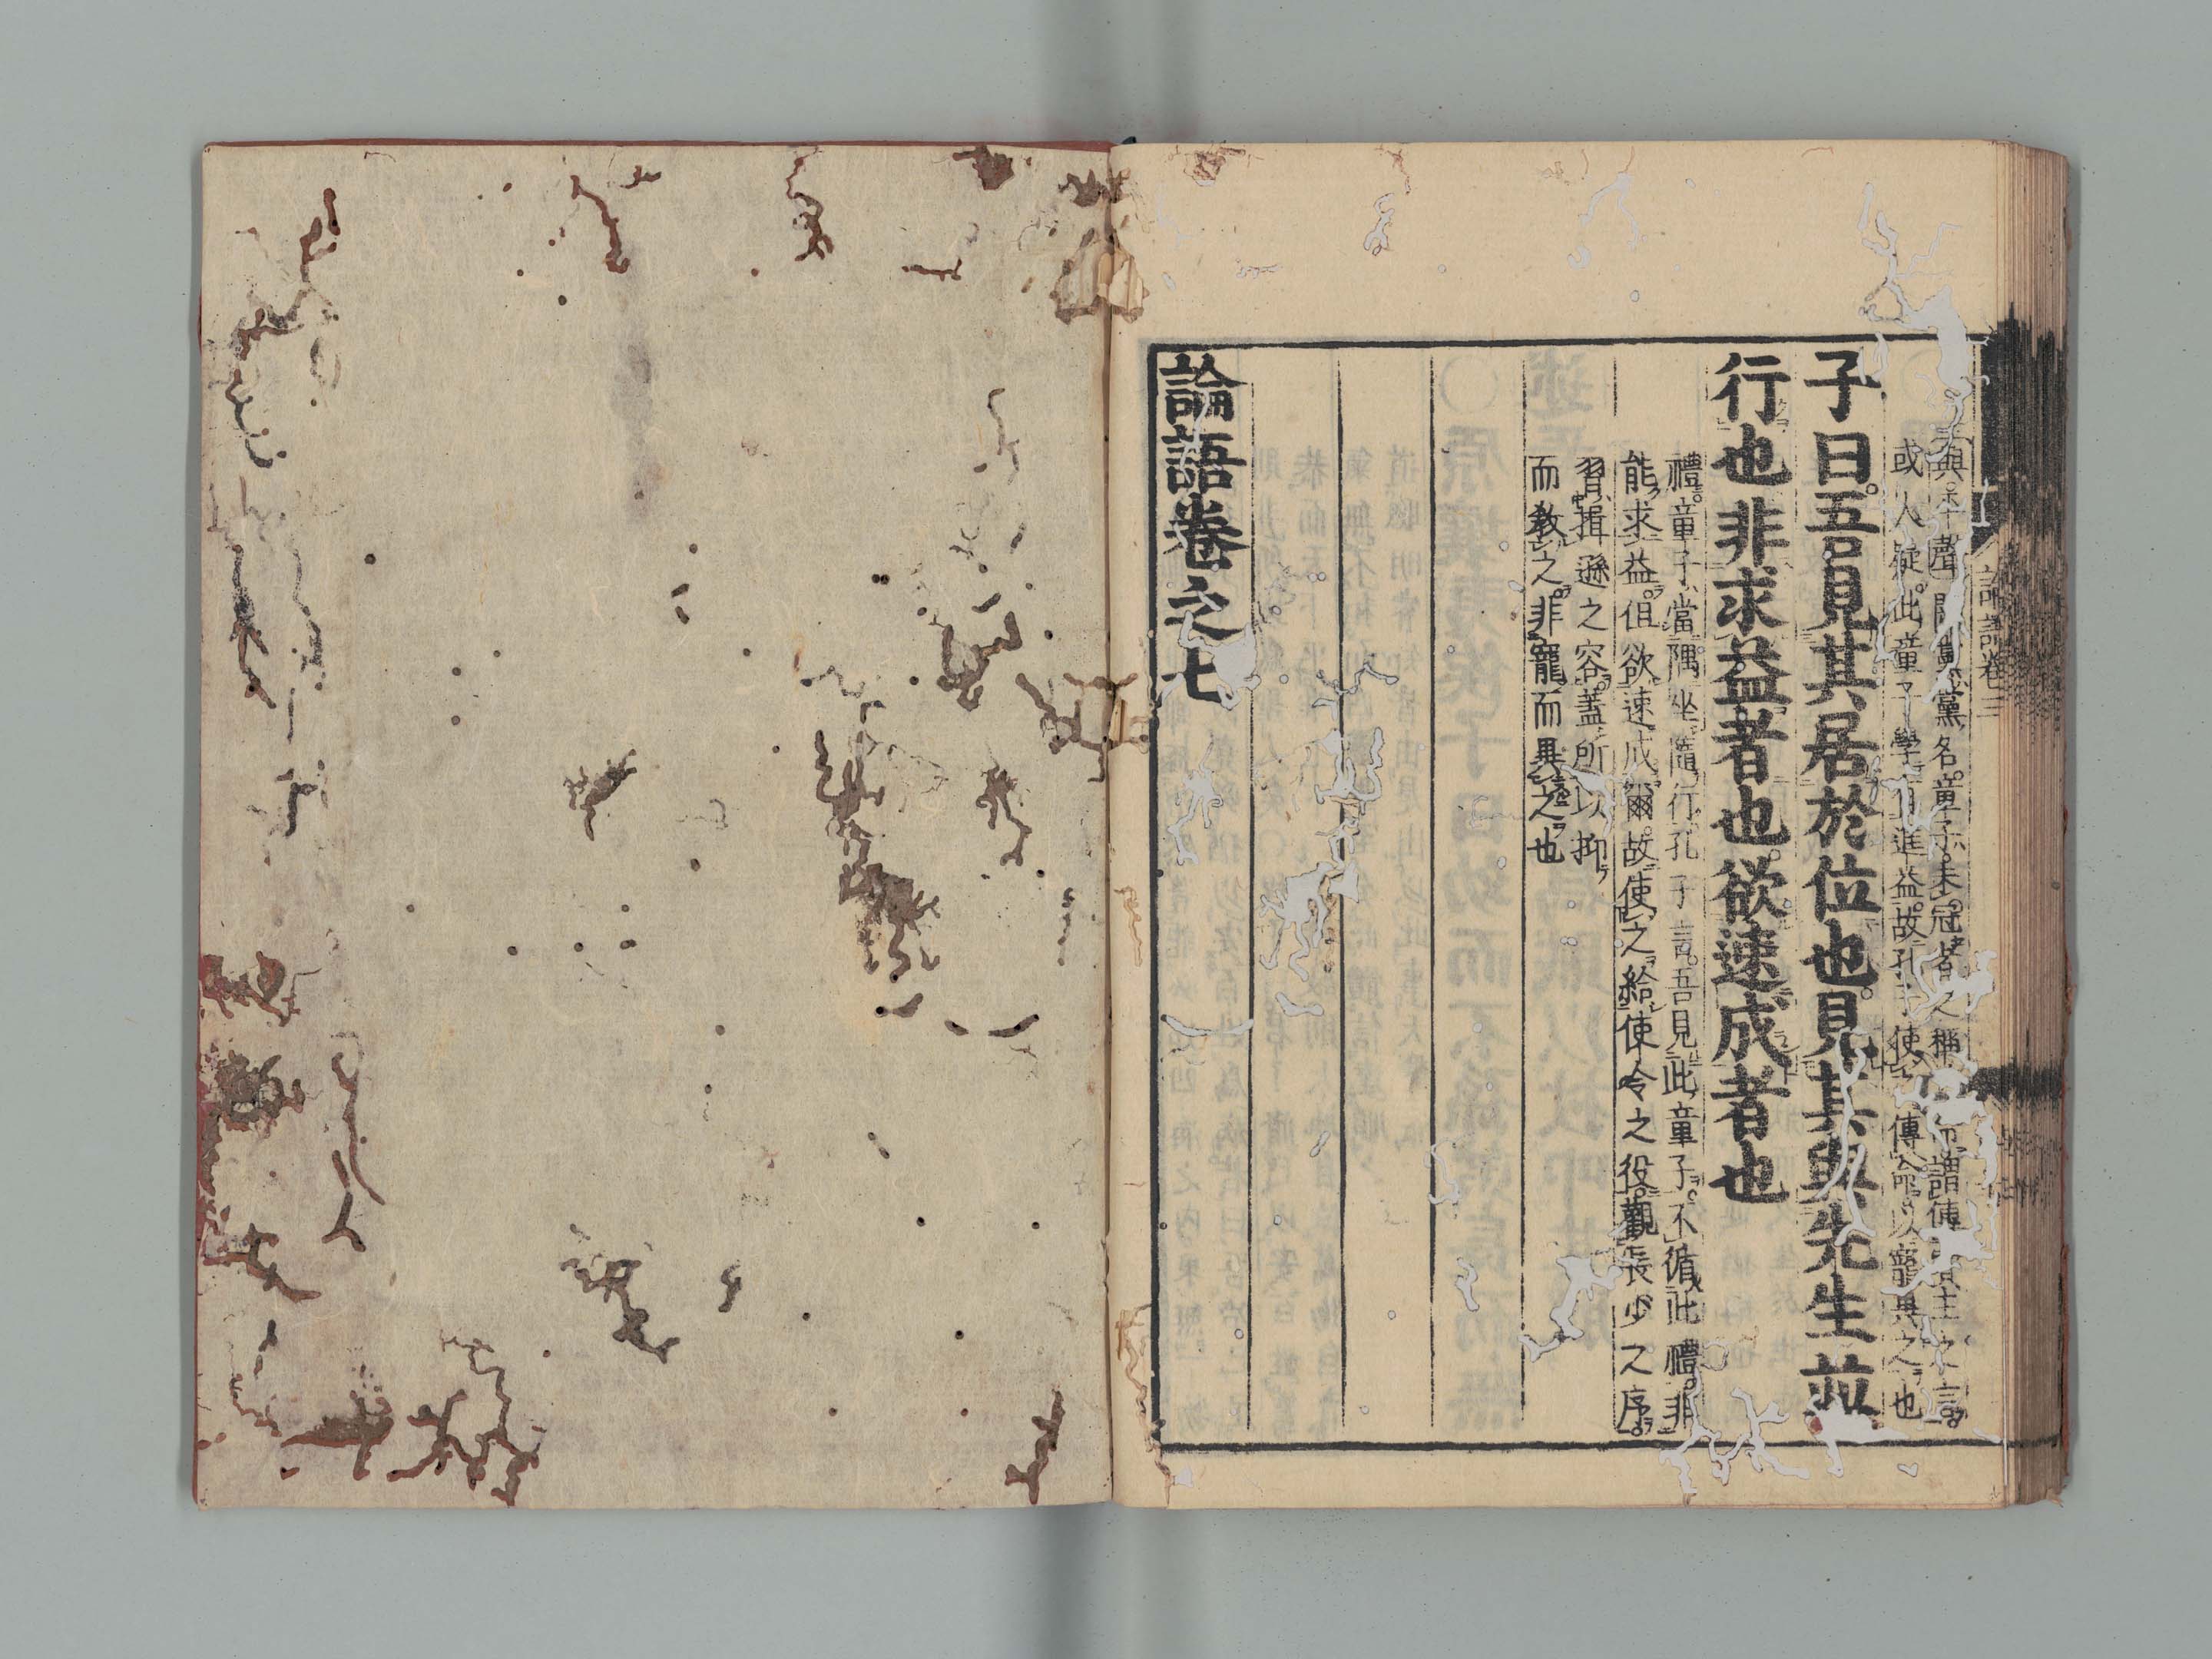 與平聲闕黨黨名童子未冠者之稱命謂傳賓主之言
或人疑此童子學有進益故孔子使之傳命以寵異之也
子曰吾見其居於位也見其與先生並
行也非求益者也欲速成者也
禮童子當隅坐隨行孔子言吾見此童子不循此禮非
能求益但欲速成爾故使之給使令之役觀長少之序
習揖遜之容蓋所以抑
而教之非寵而異之也
論語卷之七
論語卷三